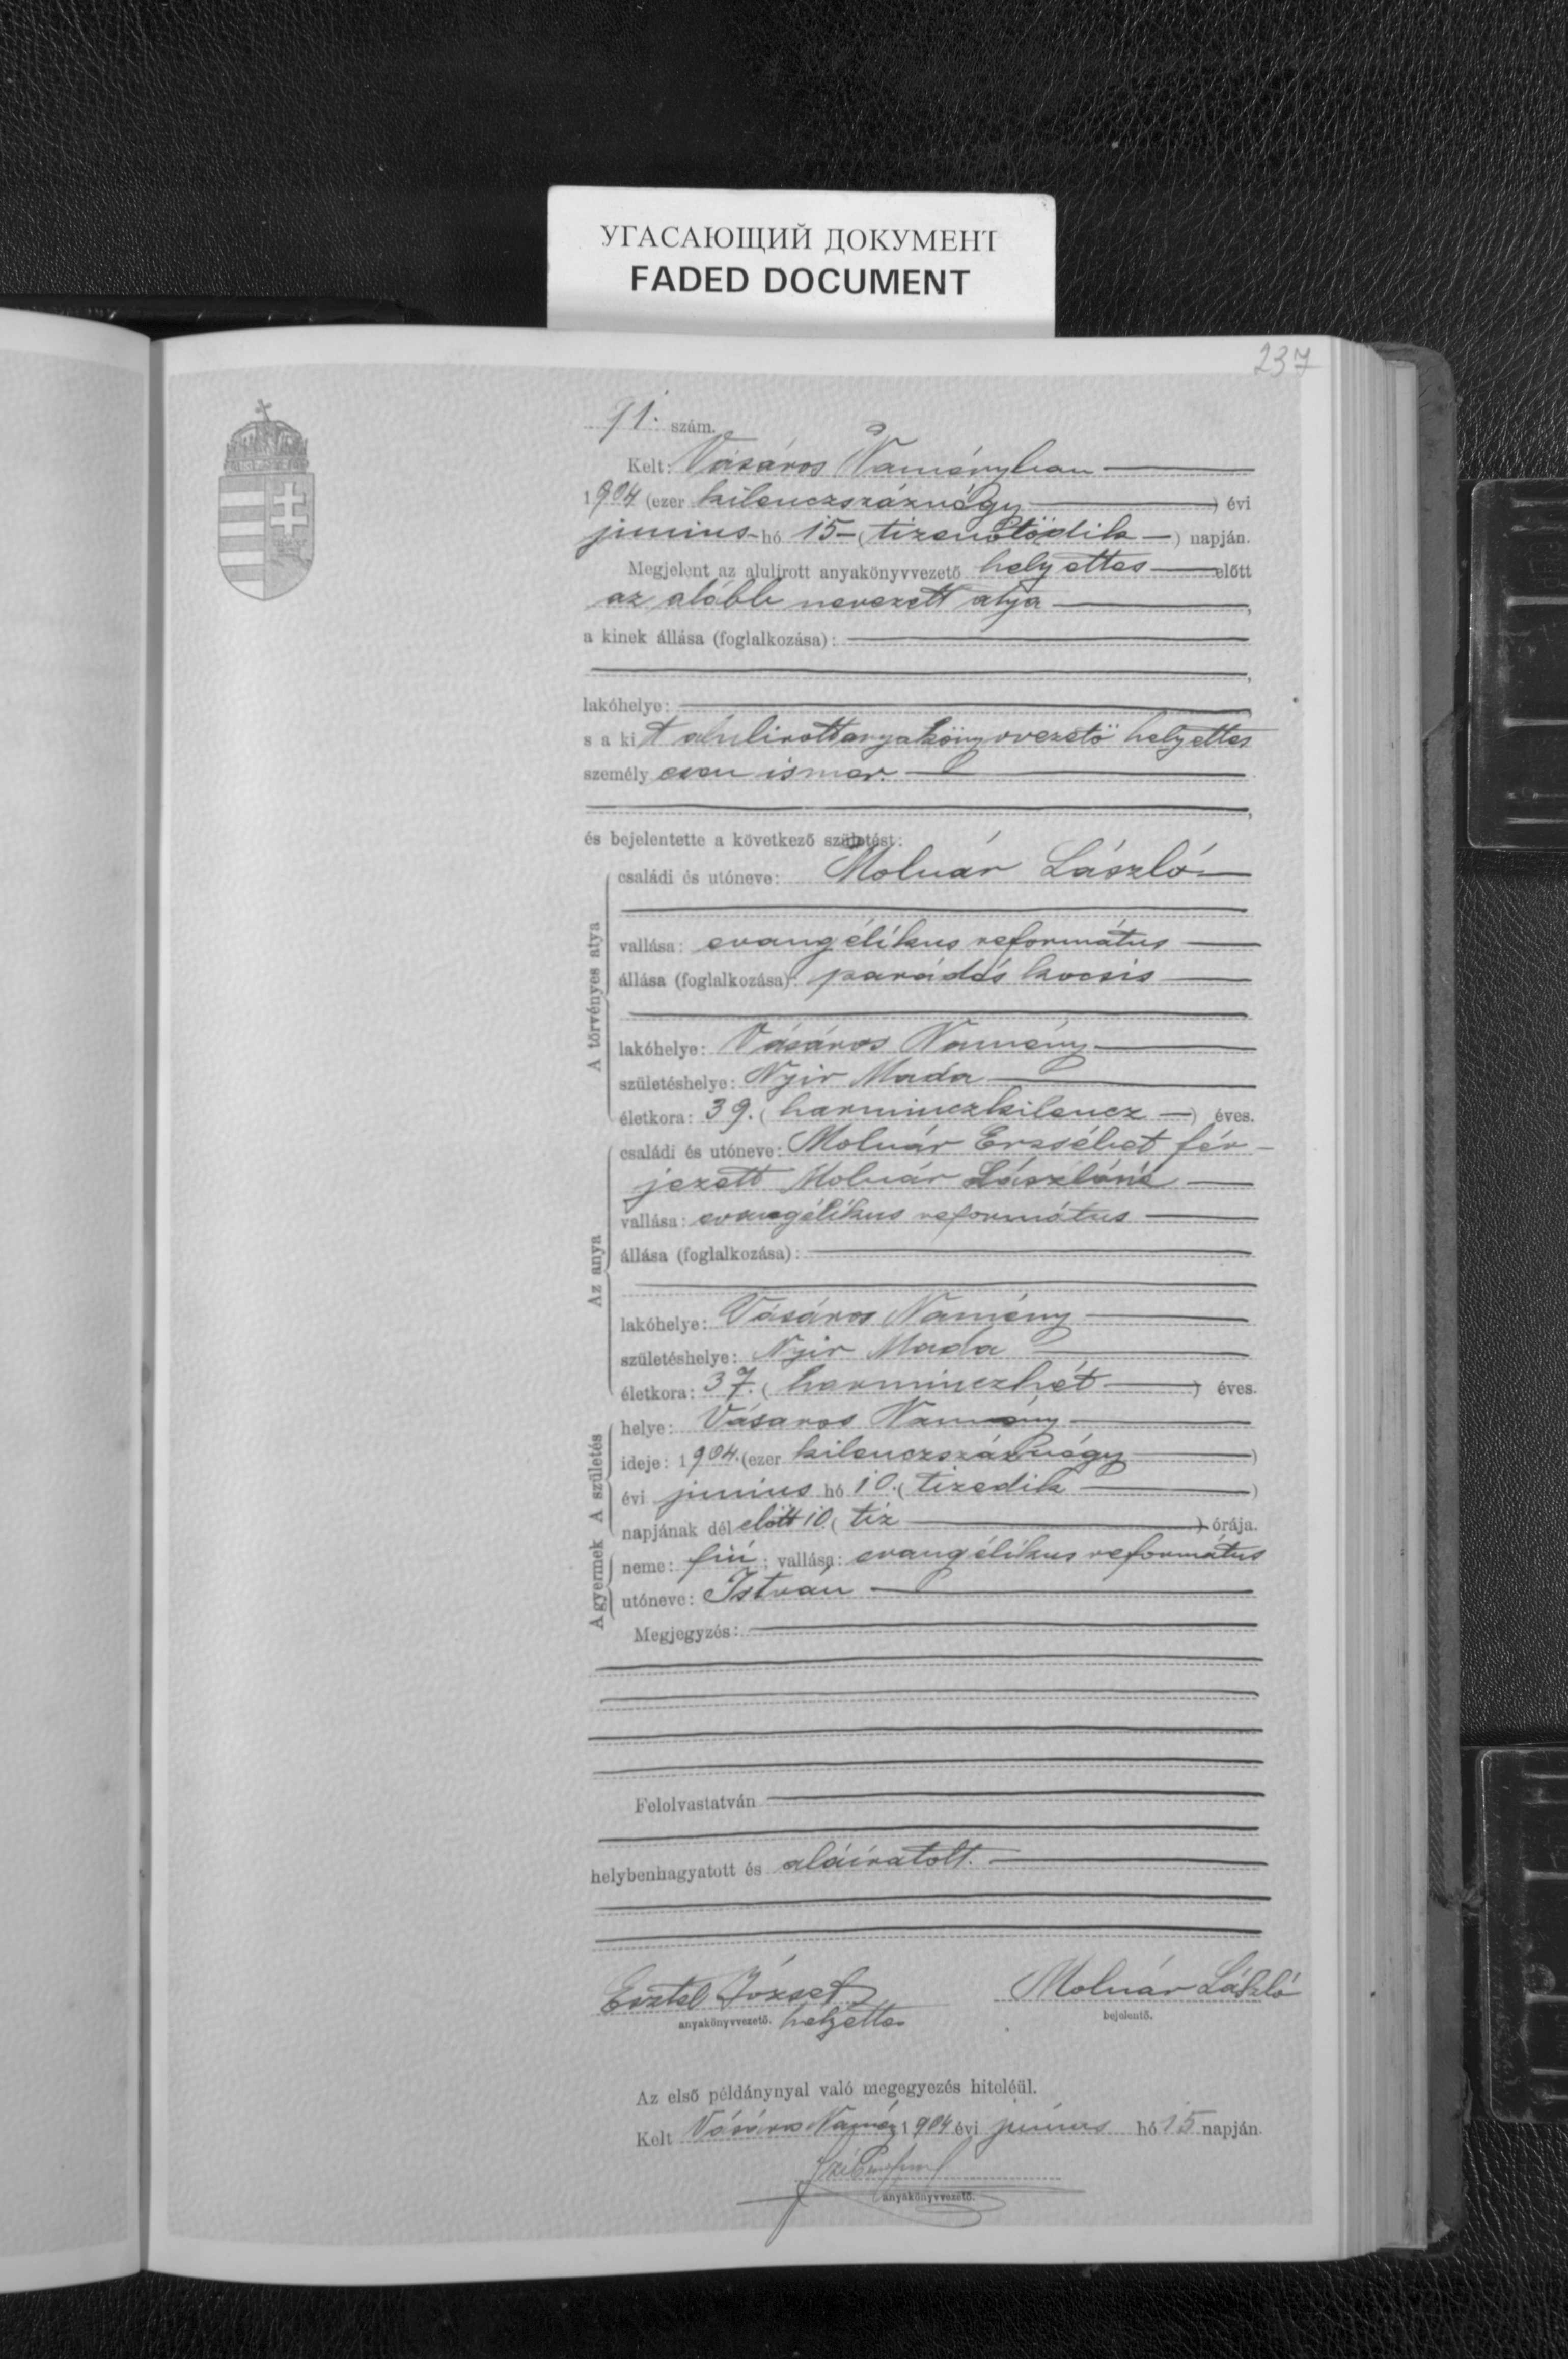 УГАСАЮЩИЙ ДОКУМЕНТ
FADED DOCUMENT
237
91. szám.
Kelt: Vásáros Naményban
1904 (ezer kilenczszáznégy) évi
junius hó 15 (tizenötödik) napján.
Megjelent az alulirott anyakönyvvezető helyettes előtt
az alább nevezett atya,
a kinek állása (foglalkozása):
,
lakóhelye:
s a kit alulirott anyakönyvvezető helyettes
személyesen ismer.
,
és bejelentette a következő születést:
A törvényes atya
családi és utóneve: Molnár László
vallása: evangélikus református
állása (foglalkozása): parádés kocsis
lakóhelye: Vásáros Namény
születéshelye: Nyir Mada
életkora: 39. (harminczkilencz) éves.
Az anya
családi és utóneve: Molnár Erzsébet fér-
jezett Molnár Lászlóné
vallása: evangélikus református
állása (foglalkozása):
lakóhelye: Vásáros Namény
születéshelye: Nyir Mada
életkora: 37. (harminczhét) éves.
A születés
helye: Vásaros Namény
ideje: 1904. (ezer kilenczszáznégy)
évi junius hó 10. (tizedik)
napjának délelőtt 10. (tiz) órája.
A gyermek
neme: fiú; vallása: evangélikus református
utóneve: István
Megjegyzés:
Felolvastatván
helybenhagyatott és aláiratott.
József Molnár László
anyakönyvvezető. helyettes bejelentő.
Az első példánynyal való megegyezés hiteléül.
Kelt Vásáros Namény 1904 évi junius hó 15 napján.
anyakönyvvezető.